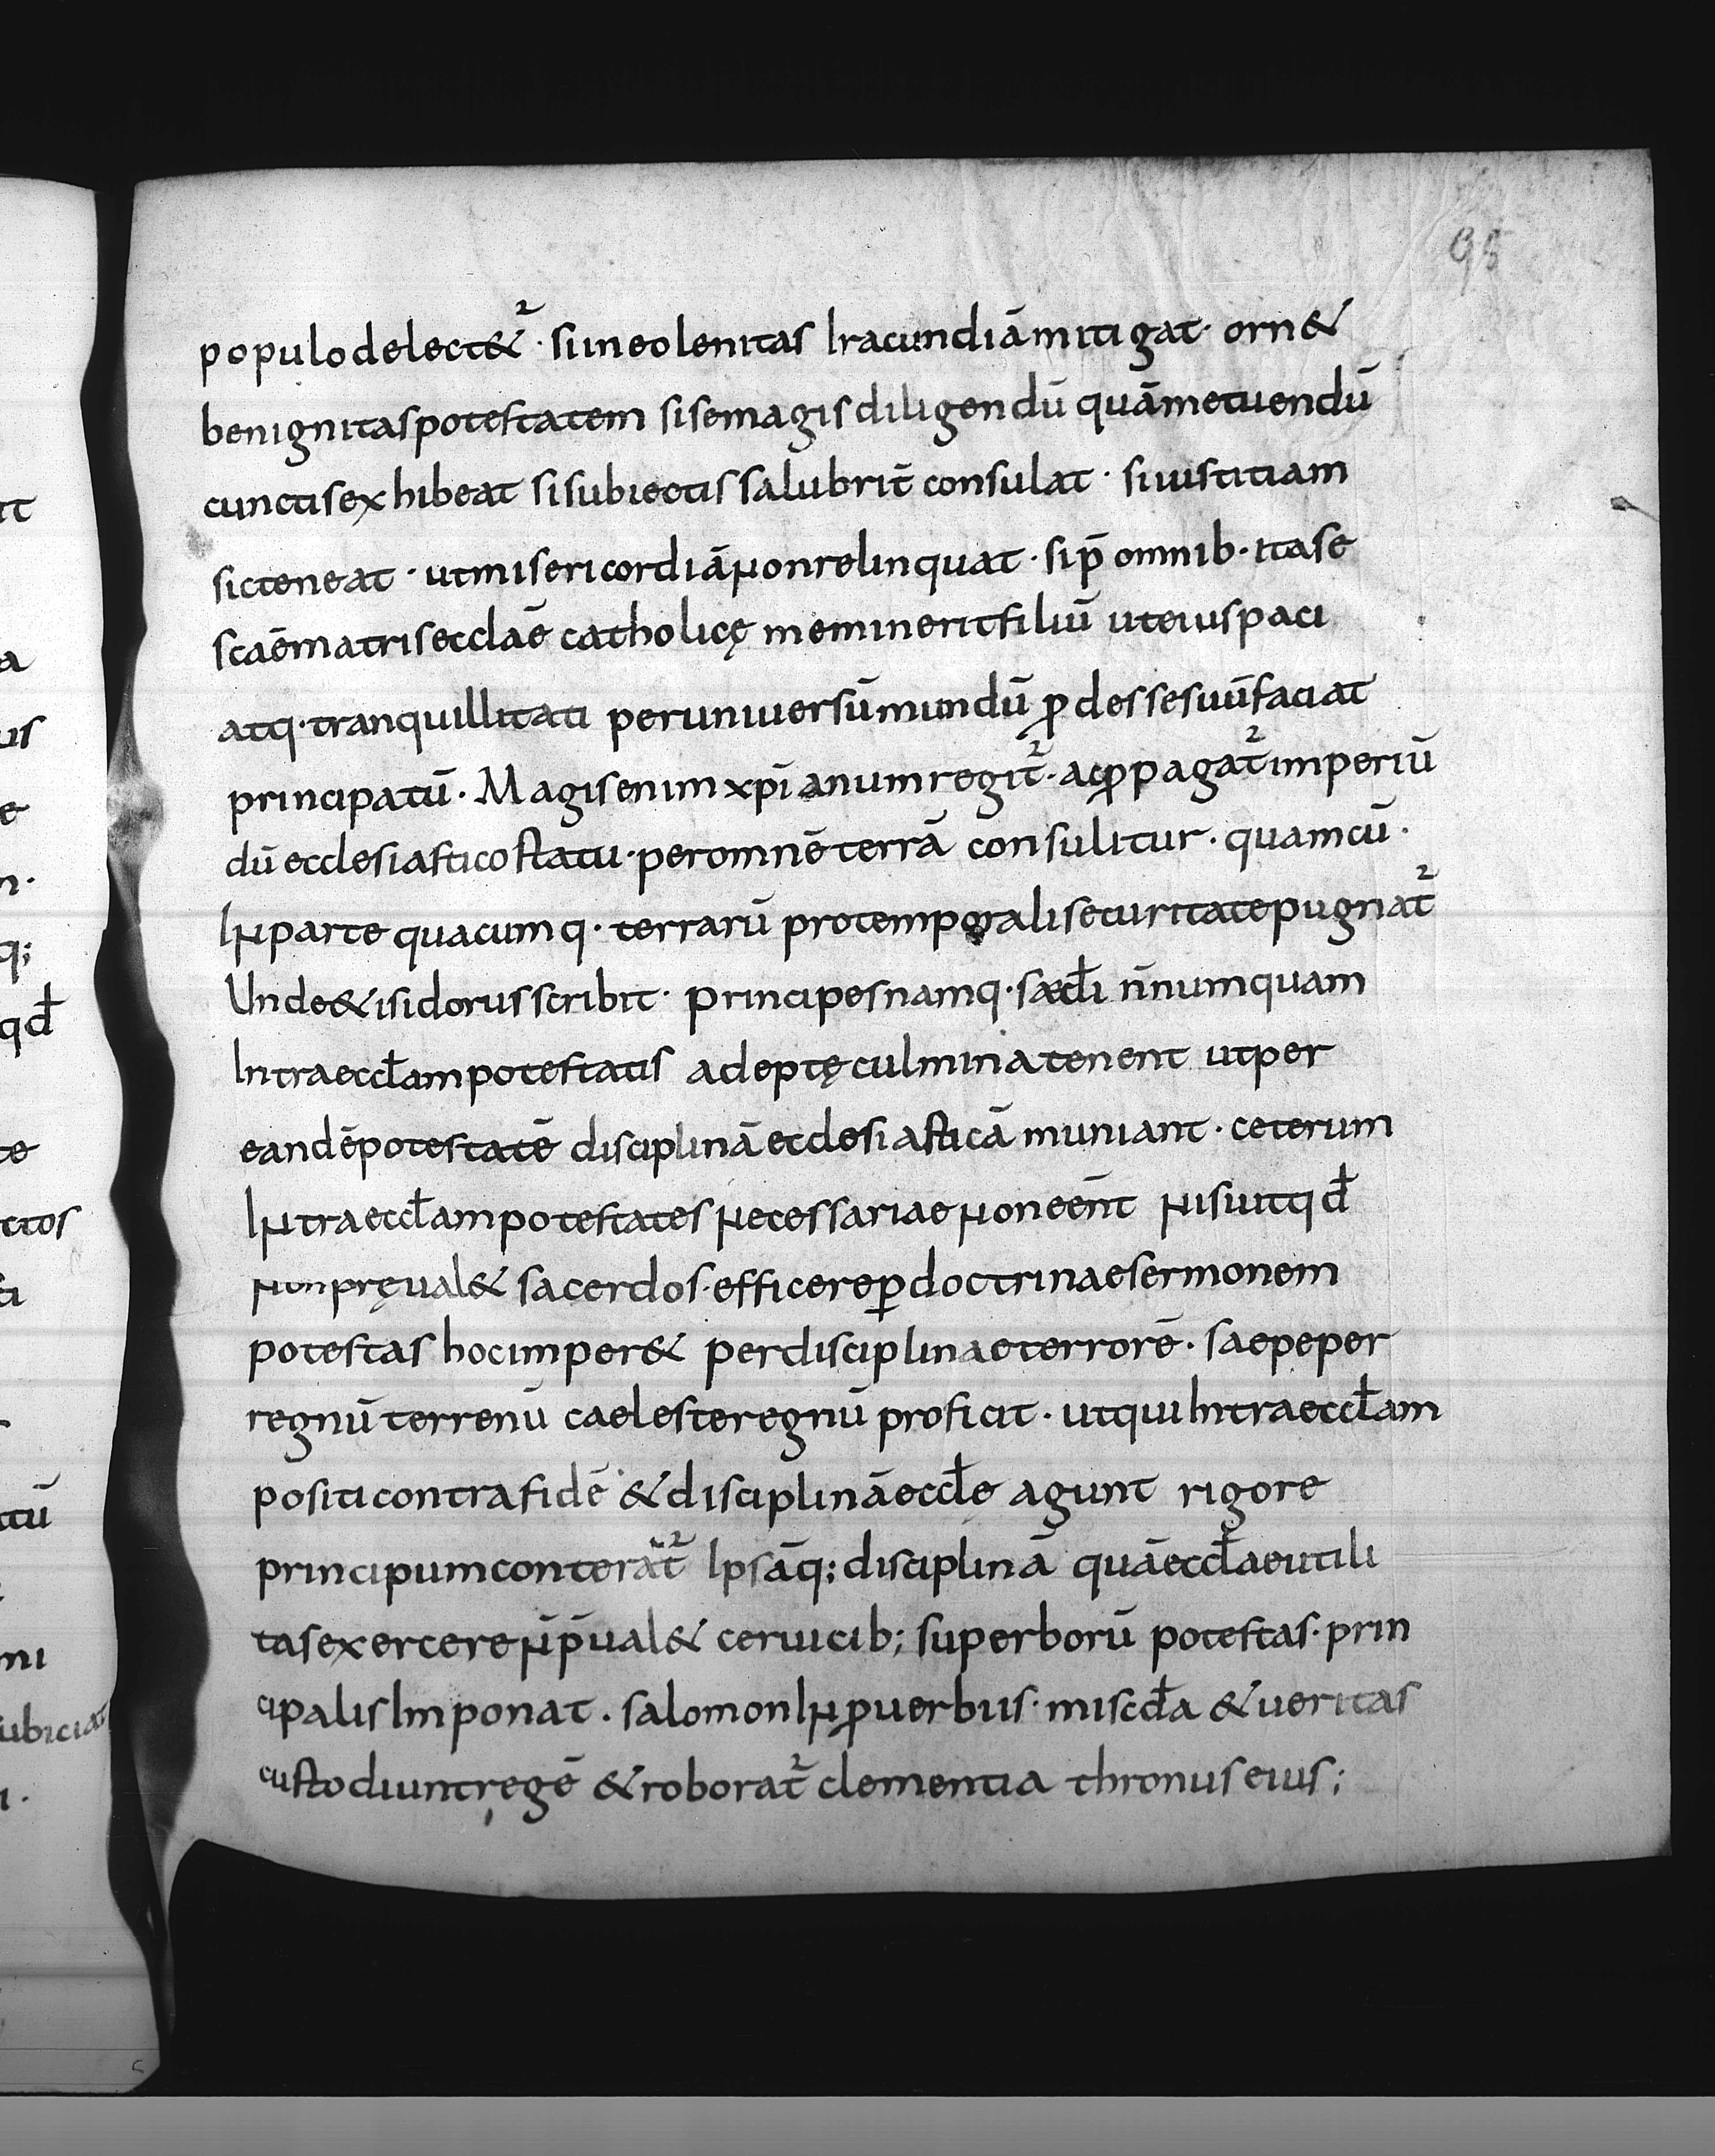 95
populo delect&̄ · si in eo lenitas Iracundiā mitigat · orn&
benignitas potestatem si se magis diligendū quā metuendū
cunctis exhibeat si subiectis salubrit̄ consulat · si iustitiam
sic teneat · ut misericordiā Non relinquat · si p̄ omnib· ita se
scāe matris ecclāe catholicę meminerit filiū ut eius paci
atq· tranquillitati per uniuersū mundū ꝓdesse suū faciat
principatū · Magis enim xp̄ianum regit̄ · ac ꝓpagat̄ imperiū
dū ecclesiastico statu · per omnē terrā consulitur · quam cū ·
IN parte quacumq· terrarū pro temporali securitate pugnat̄
Unde & isidorus scribit · principes namq· sæcl̄i n̄numquam
Intra eccl̄am potestatis adeptę culmina tenent ut per
eandē potestatē disciplinā ecclesiasticā muniant · ceterum
INtra eccl̄am potestates Necessariae Non eēnt Nisi ut qd̄
Non pręual& sacerdos · efficere ꝑ doctrinae sermonem
potestas hoc imper& per disciplinae terrorē · saepe per
regnū terrenū caeleste regnū proficit · ut qui Intra eccl̄am
positi contra fidē & disciplinā eccl̄ę agunt rigore
principum conterat̄ Ipsāq; disciplinā quā eccl̄ae utili
tas exercere N̄ p̄ual& ceruicib; superborū potestas · prin
cipalis Imponat · salomon IN ꝓuerbiis · miscd̄a & ueritas
custodiunt regē & roborat̄ clementia thronus eius ;